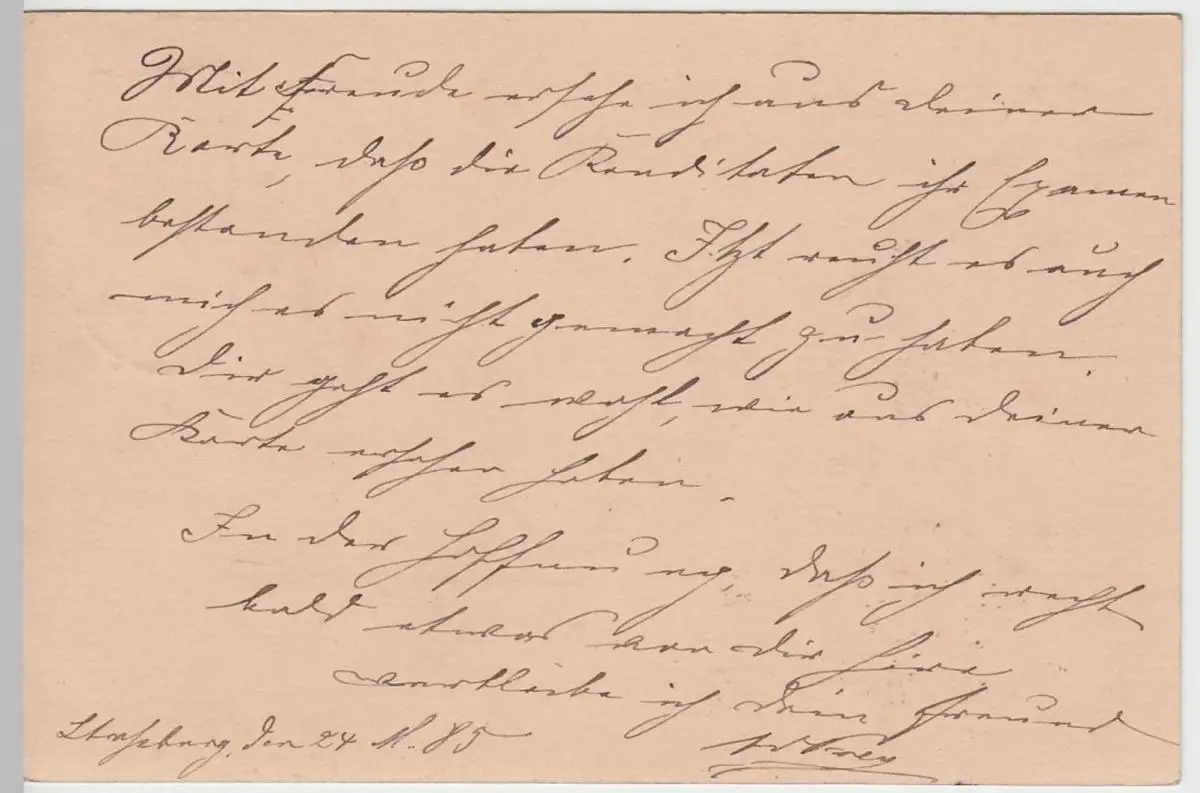 Mit Freude ersehe ich aus deiner
Karte, daß die Kanditaten ihr Examen
bestanden haben. Jtzt reuht es auch
mich es nicht gemacht zu haben.
Dir geht es wohl, wie aus deiner
Karte ersehen haben.
In der Hoffnung, daß ich recht
bald etwas von dir höre
verbleibe ich dein Freund
Straßburg, den 24 M. 85